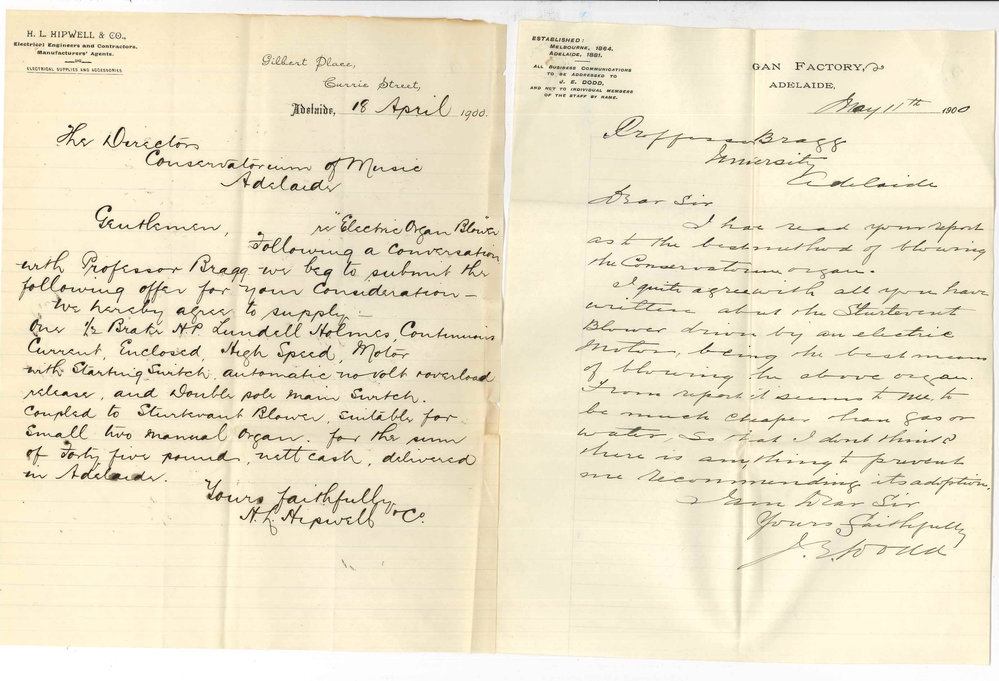 H. L. HIPWELL & CO.,
Electrical Engineers and Contractors.
Manufacturers' Agents.
ELECTRICAL SUPPLIES AND ACCESSORIES
Gilbert Place,
Currie Street,
Adelaide, 18 April 1900.
The Directors
Conservatorium of Music
Adelaide
Gentlemen, re "Electric Organ Blower
Following a conversation
with Professor Bragg we beg to submit the
following offer for your consideration —
We hereby agree to supply
One 1/2 Brake H.P. Lundell Holmes, Continuous
Current, Enclosed, High Speed, Motor
with Starting Switch, automatic no volt & overload
release, and Double pole main Switch.
Coupled to Sturtevant Blower, suitable for
small two manual organ. for the sum
of Forty five pounds, nett cash, delivered
in Adelaide.
Yours faithfully
H. L. Hipwell & Co.
ESTABLISHED:
MELBOURNE, 1864.
ADELAIDE, 1881.
ALL BUSINESS COMMUNICATIONS
TO BE ADDRESSED TO
J. E. DODD,
AND NOT TO INDIVIDUAL MEMBERS
OF THE STAFF BY NAME.
GAN FACTORY,
ADELAIDE,
May 11th 1900
Proffessor Bragg
University
Adelaide
Dear Sir
I have read your report
as to the best method of blowing
the Conservatorium organ.
I quite agree with all you have
written about the Sturtevent
Blower driven by an electric
Motor, being the best means
of blowing the above organ.
From report it seems to me to
be much cheaper than gas or
water, so that I dont think
there is anything to prevent
me recommending its adoption.
I am Dear Sir
Yours Faithfully
J. E. Dodd